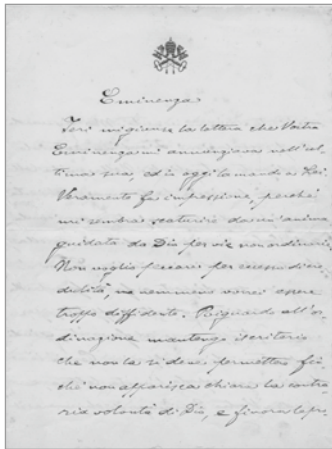 Eminenza
Ieri mi giunse la lettera che Vostra
Eminenza mi annunziava nell'ul-
tima sua, ed io oggi la mando a Lei.
Veramente fa impressione, perché
mi sembra scaturire da un'anima
guidata da Dio per vie non ordinarie.
Non voglio peccare per eccesso di cre-
dulità, ma nemmeno vorrei essere
troppo diffidente. Riguardo all'or-
dinazione mantengo il criterio
che non la si deve permettere fin-
ché non apparisca chiara la contra-
ria volontà di Dio, e finora la pre-